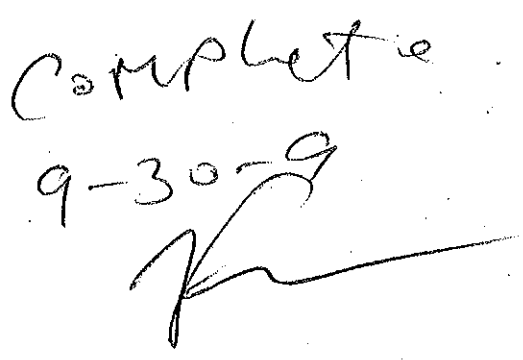 Complete
9-30-9